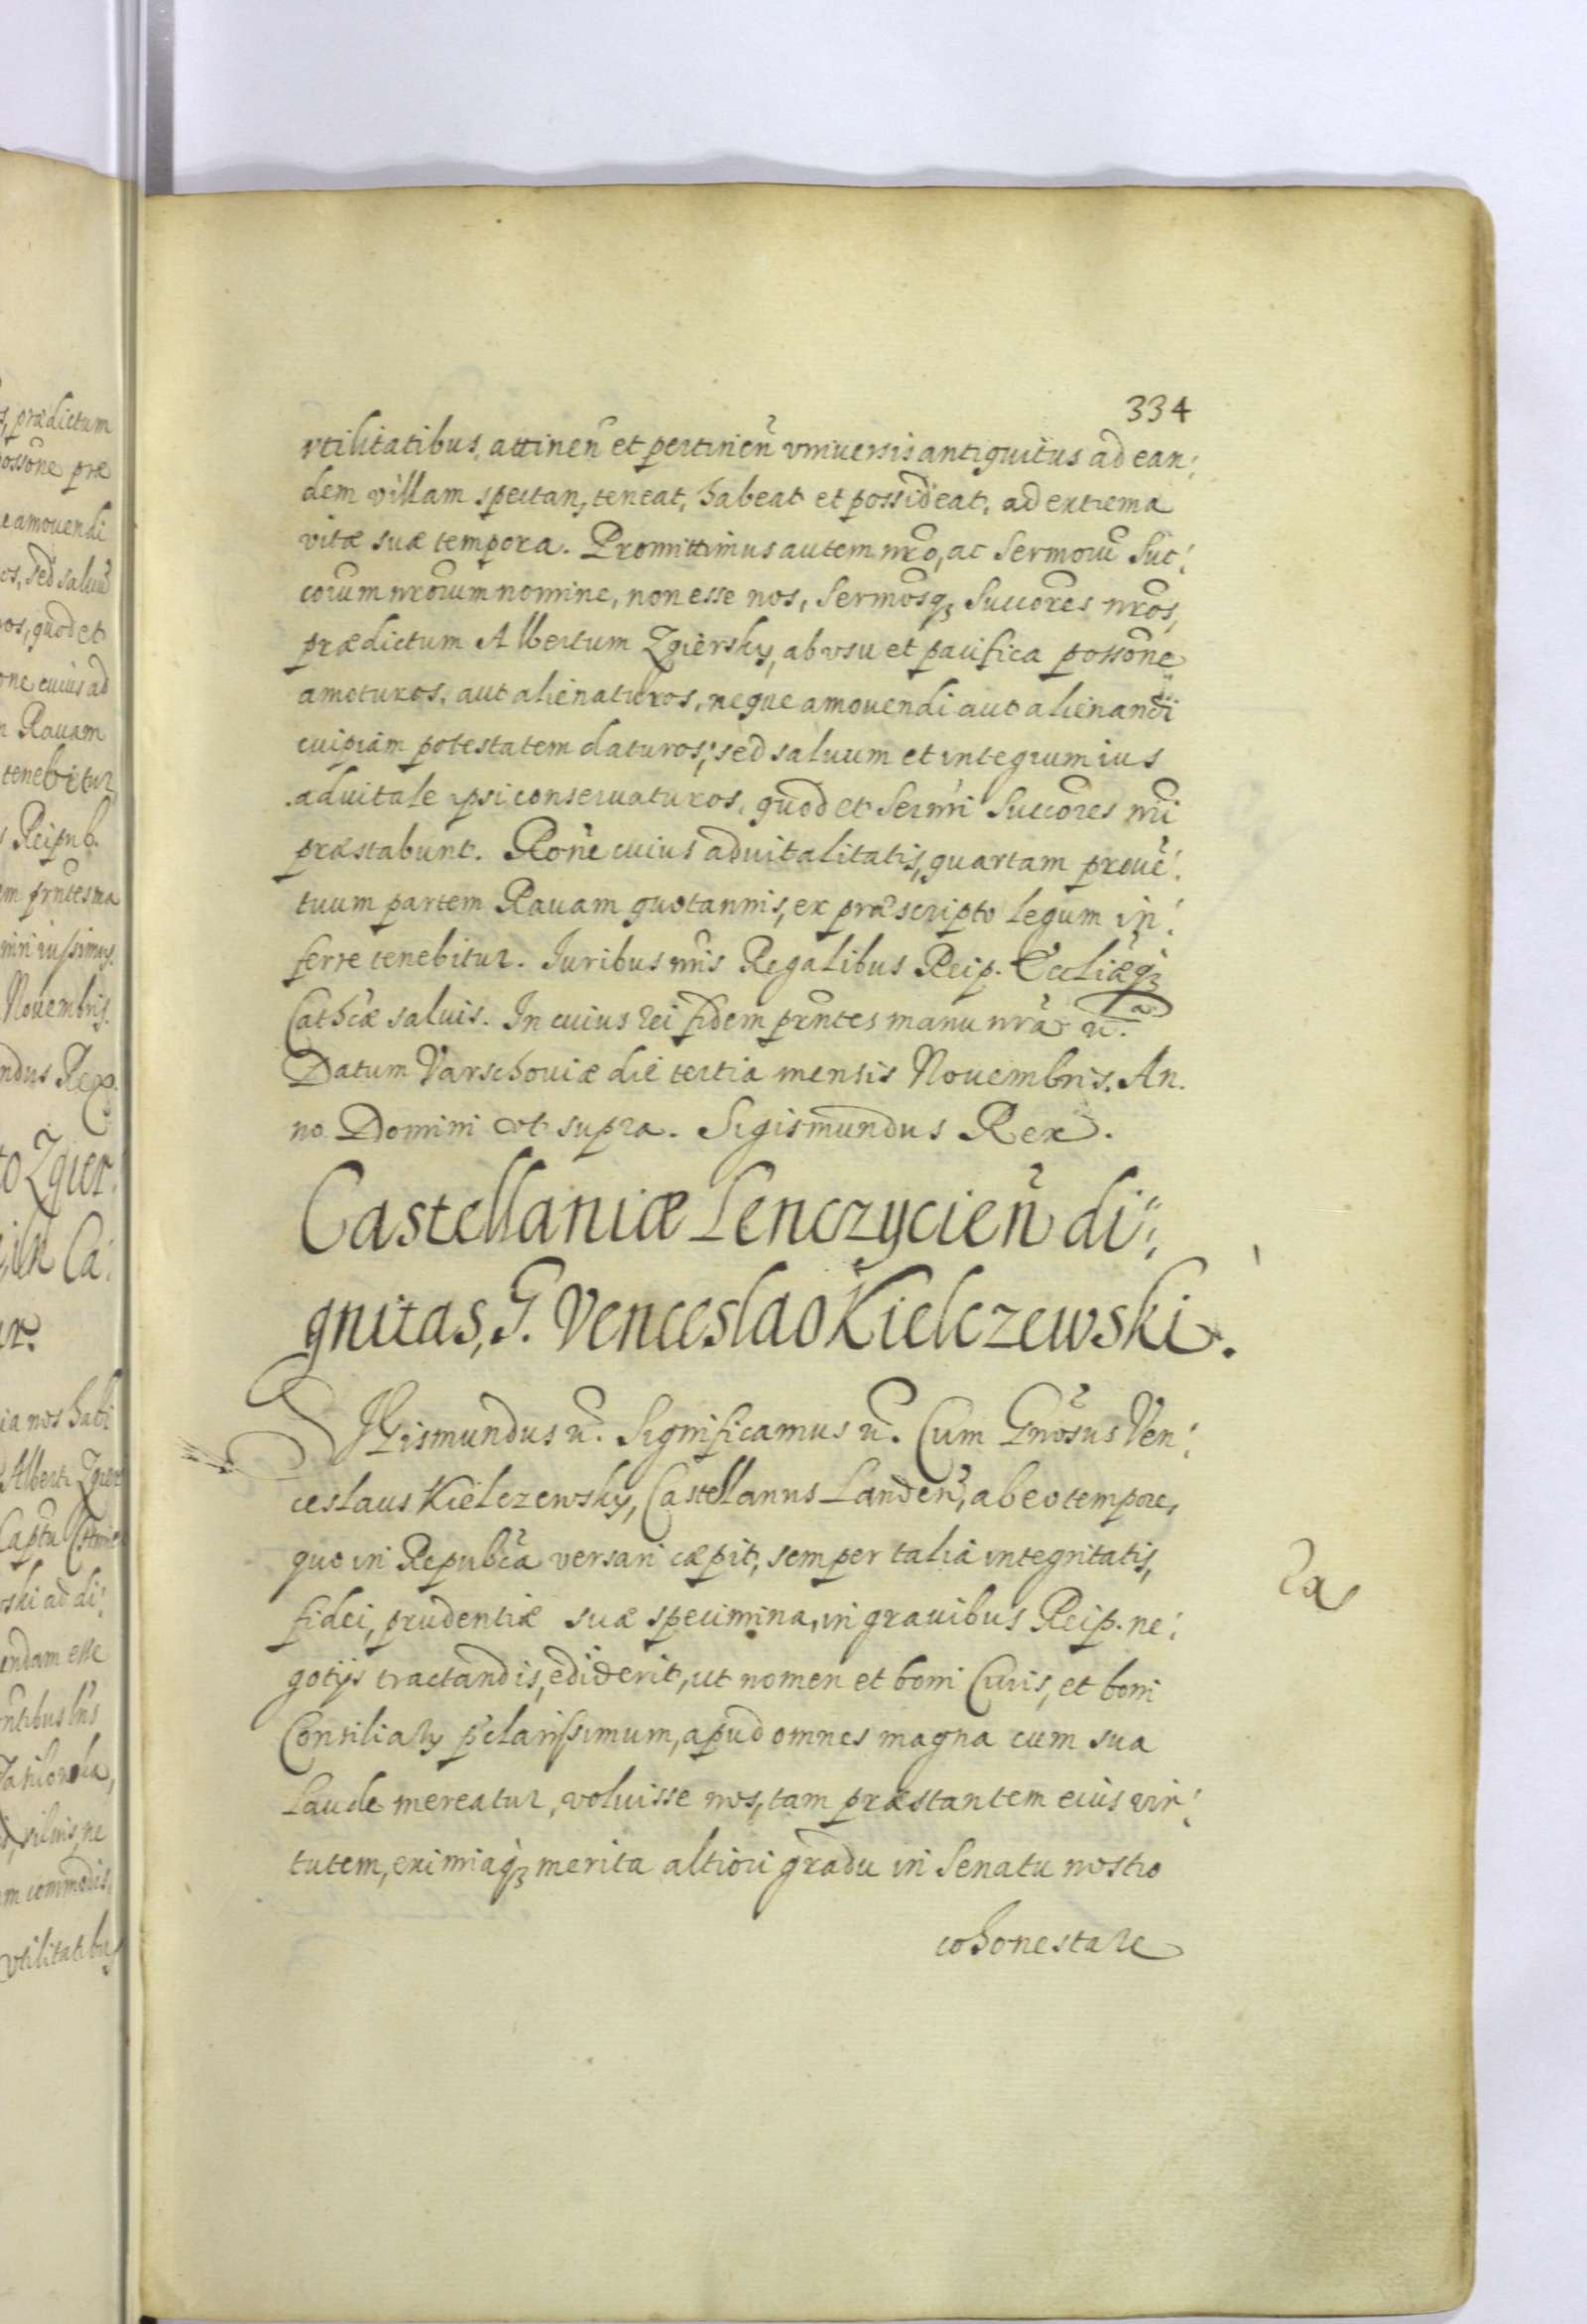 334
vtilitatibus, attinen̄ et pertinen̄ vniuersis antiquitus ad ean:
dem villam spectan, teneat, habeat et possideat, ad extrema
vitæ suæ tempora. Promittimus autem nr̄o, ac Sermorū Suc:
corum nr̄orum nomine, non esse nos, Sermosq3 Succores nr̄os,
prædictum Albertum Zgiersky, ab vsu et pacifica possōne
amoturos, aut alienaturos, neque amouendi aut alienandi
cuipiam potestatem daturos; sed saluum et integrum ius
aduitale ipsi conseruaturos, quod et Sermi Succores nr̄i
præstabunt. Rōne cuius aduitalitatis, quartam prouē:
tuum partem Rauam quotannis, ex præscripto legum in:
ferre tenebitur. Iuribus nr̄is Regalibus Reip. Eccliæq3
Cathcæ saluis. In cuius rei fidem prn̄tes manu nr̄a
Datum Varschouiæ die tertia mensis Nouembris. An.
no Domini vt supra. Sigismundus Rex.
Castellaniæ Lenczycien̄ di:
gnitas, G. Venceslao Kielczewski.
SIGismundus ec̄. Significamus ec̄. Cum Gnōsus Ven:
ceslaus Kielczewsky, Castellanus Landen̄, ab eo tempore,
quo in Repubcā versari cæpit, semper talia integritatis,
fidei, prudentiæ suæ specimina, in grauibus Reip. ne:
gotijs tractandis, ediderit, ut nomen et boni Ciuis, et boni
Consiliarij p̄clarissimum, apud omnes magna cum sua
laude mereatur, voluisse nos, tam præstantem eius vir:
tutem, eximiaq3 merita altiori gradu in Senatu nostro
cohonestare